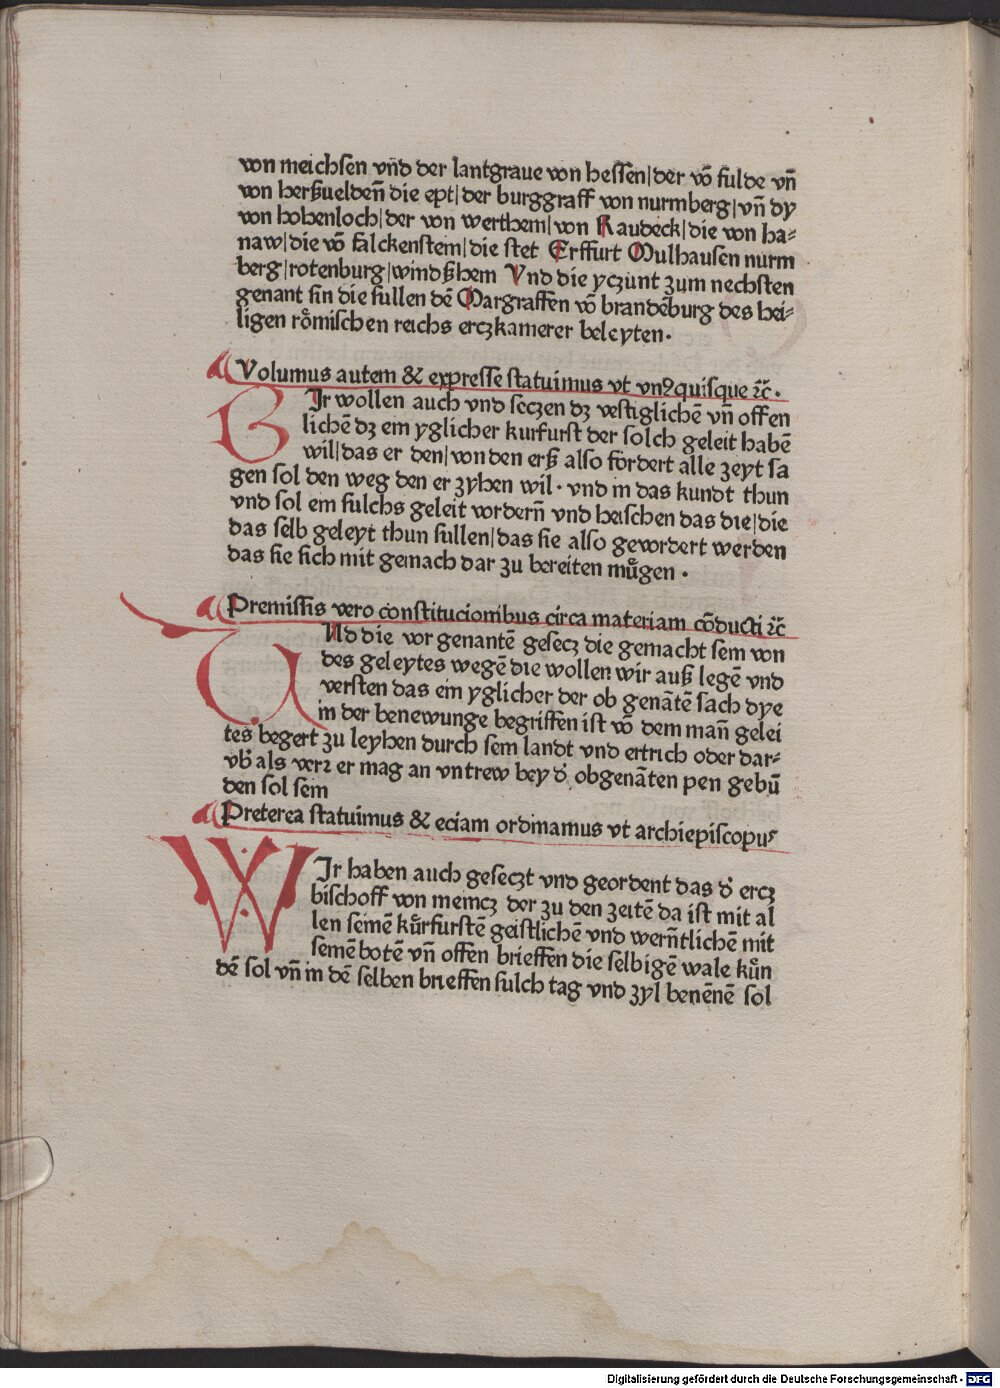 von meichsen vñd der lantgraue von hessen|der vō fulde vñ
von herßueldenñ die ept|der burggraff von nurmberg|vñ dy
von hohenloch|der von werthem|von Raudeck|die von ha⸗
naw|die vō falckenstem|die stet Erffurt Mulhausen nurm
berg|rotenburg|windßhem Vnd die yczunt zum nechsten
genant sin die sullen dē Margraffen vō brandēburg des hei⸗
ligen rỏmischen reichs erczkamerer beleyten·
Volumus autem & expresse statuimus vt vnꝰquisque ⁊c̄·
Ir wollen auch vnd seczen dz vestiglichē vñ offen
lichē dz em yglicher kurfurst der solch geleit habē
wil|das er den|von den erß also fordert alle zeyt sa
gen sol den weg den er zyhen wil· vnd in das kundt thun
vnd sol em sulchs geleit vorderñ vnd heischen das die|die
das selb geleyt thun sullen|das sie also gevordert werden
das sie sich mit gemach dar zu bereiten mu̇gen·
Premissis vero constitucionibus circa materiam cōducti ⁊c̄
VNd die vor genantē gesecz die gemacht sem von
des geleytes wegē die wollen wir auß legē vnd
versten das ein yglicher der ob genātē sach dye
in der benewunge begriffen ist vō dem mañ gelei
tes begert zu leyhen durch sem landt vnd ertrich oder dar⸗
vb̾ als verꝛ er mag an vntrew bey d̾ obgenāten pen gebū
den sol sem
Preterea statuimus & eciam ordinamus vt archiepiscopuˢ
WIr haben auch geseczt vnd geordent das d̾ ercz
bischoff von memcz der zu den zeitē da ist mit al
len seinē ku̇rfurstē geistlichē vnd werñtlichē mit
semē botē vñ offen brieffen die selbigē wale ku̇n
dē sol vñ in dē selben brieffen sulch tag vnd zyl benēnē sol
Digitalisierung gefördert durch die Deutsche Forschungsgemeinschaft · DFG